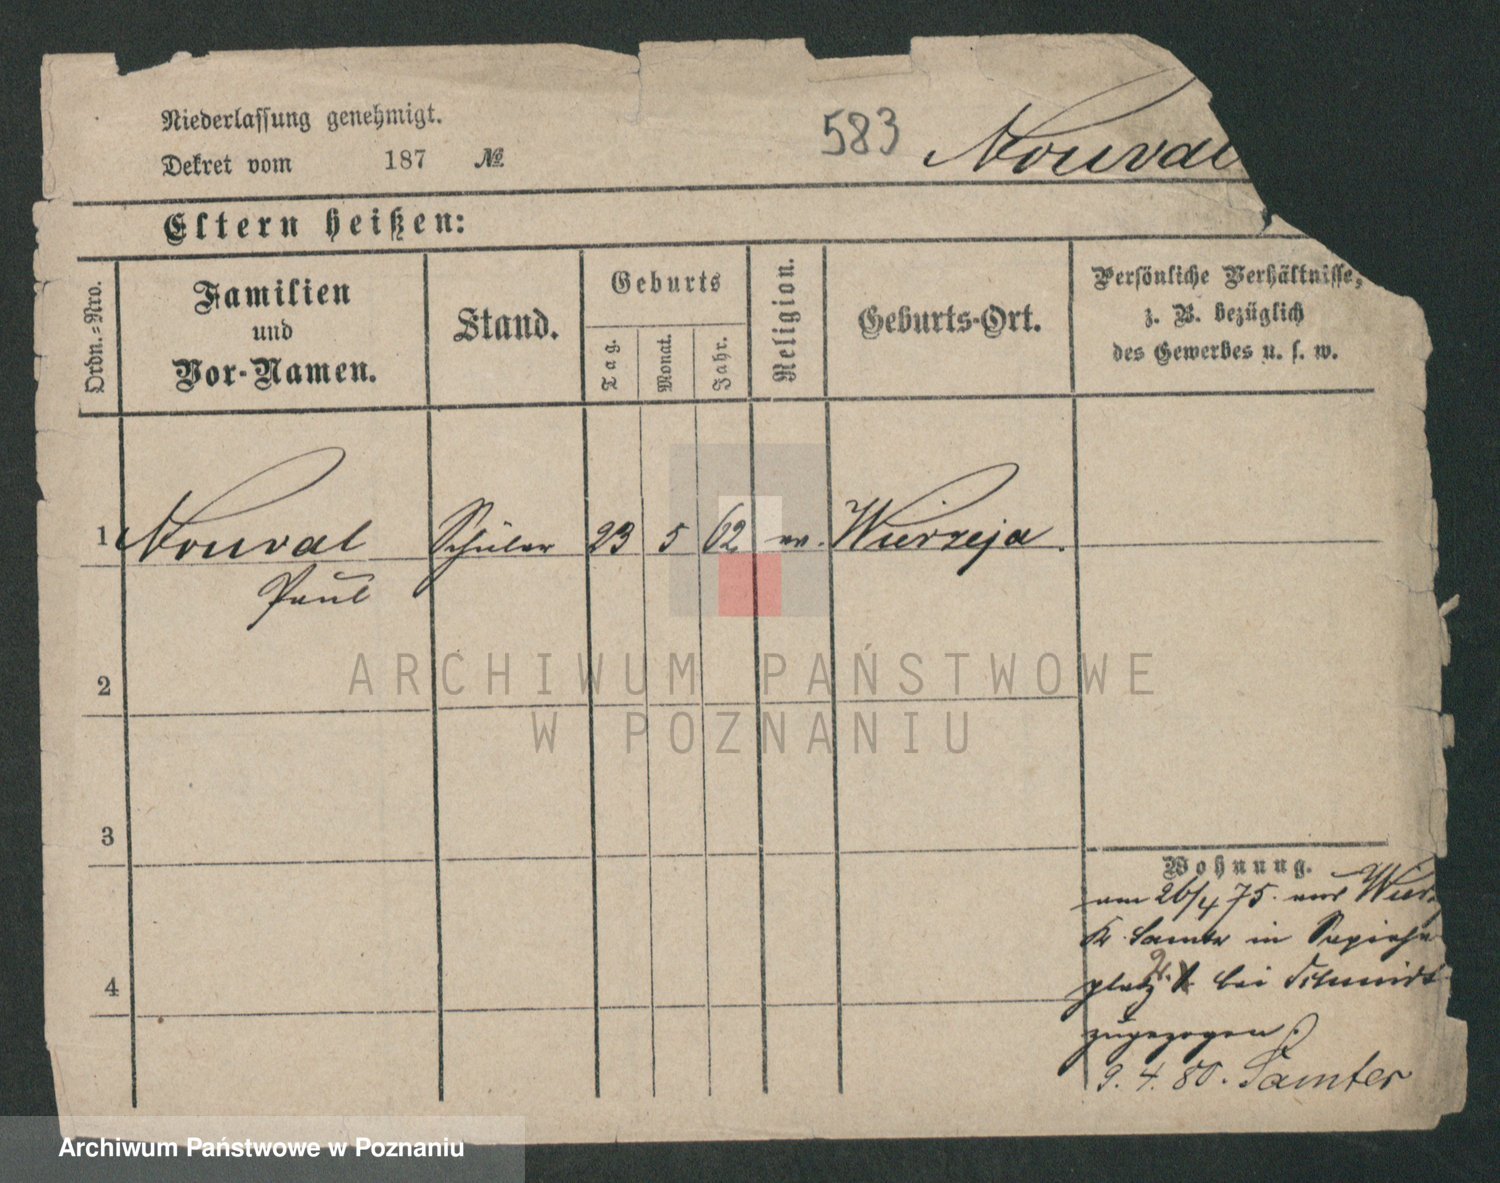 Niederlassung genehmigt.
583 Nouval
Dekret vom 187 №
Eltern heißen:
Ordn.-Nro.
Familien
und
Vor-Namen.
Stand.
Geburts
Tag.
Monat.
Jahr.
Religion.
Geburts-Ort.
Persönliche Verhältnisse,
z. B. bezüglich
des Gewerbes u. s. w.
1 Nouval Schüler 23 5 62 ev. Wierzeja.
Paul
2
3
4
Wohnung.
am 26/4 75. aus Wier
Kr. Samter in
platz bei Schmidt
zugezogen.
9. 4. 80. Samter
ARCHIWUM PAŃSTWOWE
W POZNANIU
Archiwum Państwowe w Poznaniu